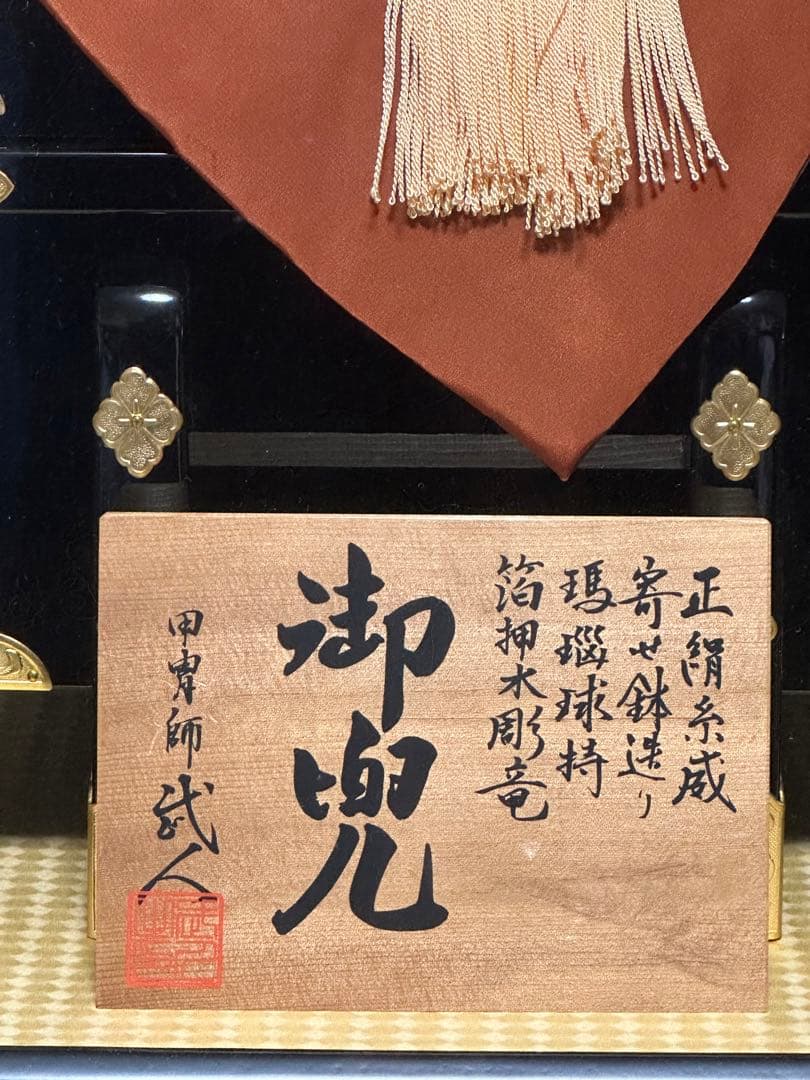 正絹糸威
寄せ鉢造り
瑪瑙球持
箔押木彫竜
御兜
甲冑師 武人